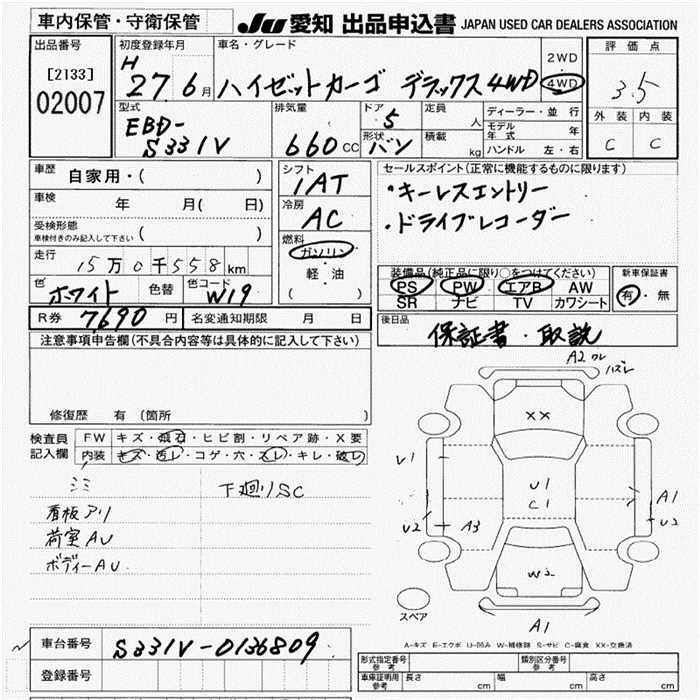 車内保管・守衛保管
JU 愛知 出品申込書 JAPAN USED CAR DEALERS ASSOCIATION
出品番号
[2133]
02007
初度登録年月
H
27. 6月
車名・グレード
ハイゼットカーゴ デラックス4WD
2WD
・
4WD
評価点
3.5
外装 内装
C C
型式
EBD-
S331V
排気量
660 CC
ドア
5
形状
バン
定員
人
積載
kg
ディーラー・並行
モデル年式 年
ハンドル 左・右
車歴
自家用・( )
車検
年 月( 日)
受検形態
車検付きのみ記入して下さい ( )
走行
15万0千558km
色
ホワイト
色替
色コード
W19
シフト
1AT
冷房
AC
燃料
ガソリン
・
軽・油
( )
セールスポイント(正常に機能するものに限ります)
・キーレスエントリー
・ドライブレコーダー
装備品(純正品に限り○をつけてください)
PS PW エアB AW
SR ナビ TV カワシート
新車保証書
有・無
R券 7690円
名変通知期限 月 日
後日品
保証書・取説
注意事項申告欄(不具合内容等は具体的に記入して下さい)
修復歴 有 〔箇所
検査員
記入欄
FW キズ・飛石・ヒビ割・リペア跡・X要
内装 キズ・汚レ・コゲ・穴・スレ・キレ・破レ
シミ
看板アリ
荷室AU
ボディーAU
下廻りSC
A2 ワレ
ハズレ
XX
V1
U1
C1
A1
U2
A3
W2
A1
スペア
A-キズ E-エクボ U-凹み W-補修跡 S-サビ C-腐食 XX-交換済
車台番号
S331V-0136809
登録番号
形式指定番号
参考
類別区分番号
参考
車庫証明用
参考
長さ cm
幅 cm
高さ cm